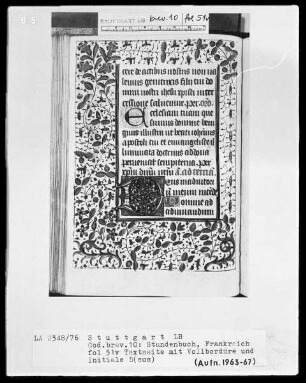 STUTTGART LB brev. 10 fol 51v
cere de actibus nostris non va
lemus genitricis filii tui do
mini nostri ihesu xpisti inter
cessione saluemur. per
Ecclesiam tuam que
sumus domine beni
gnus illustra ut beati iohannis
apostoli tui et euangeliste il
luminata doctrinis ad dona
perueniat sempiterna. per
xpm ad
Deus in adiutori
um meum intēde
Domine ad
adiuuandum
LA 2348/76 Stuttgart LB
Cod.brev.10: Stundenbuch, Frankreich
fol 51v Textseite mit Vollbordüre und
Initiale D(eus) (Aufn.1963-67)